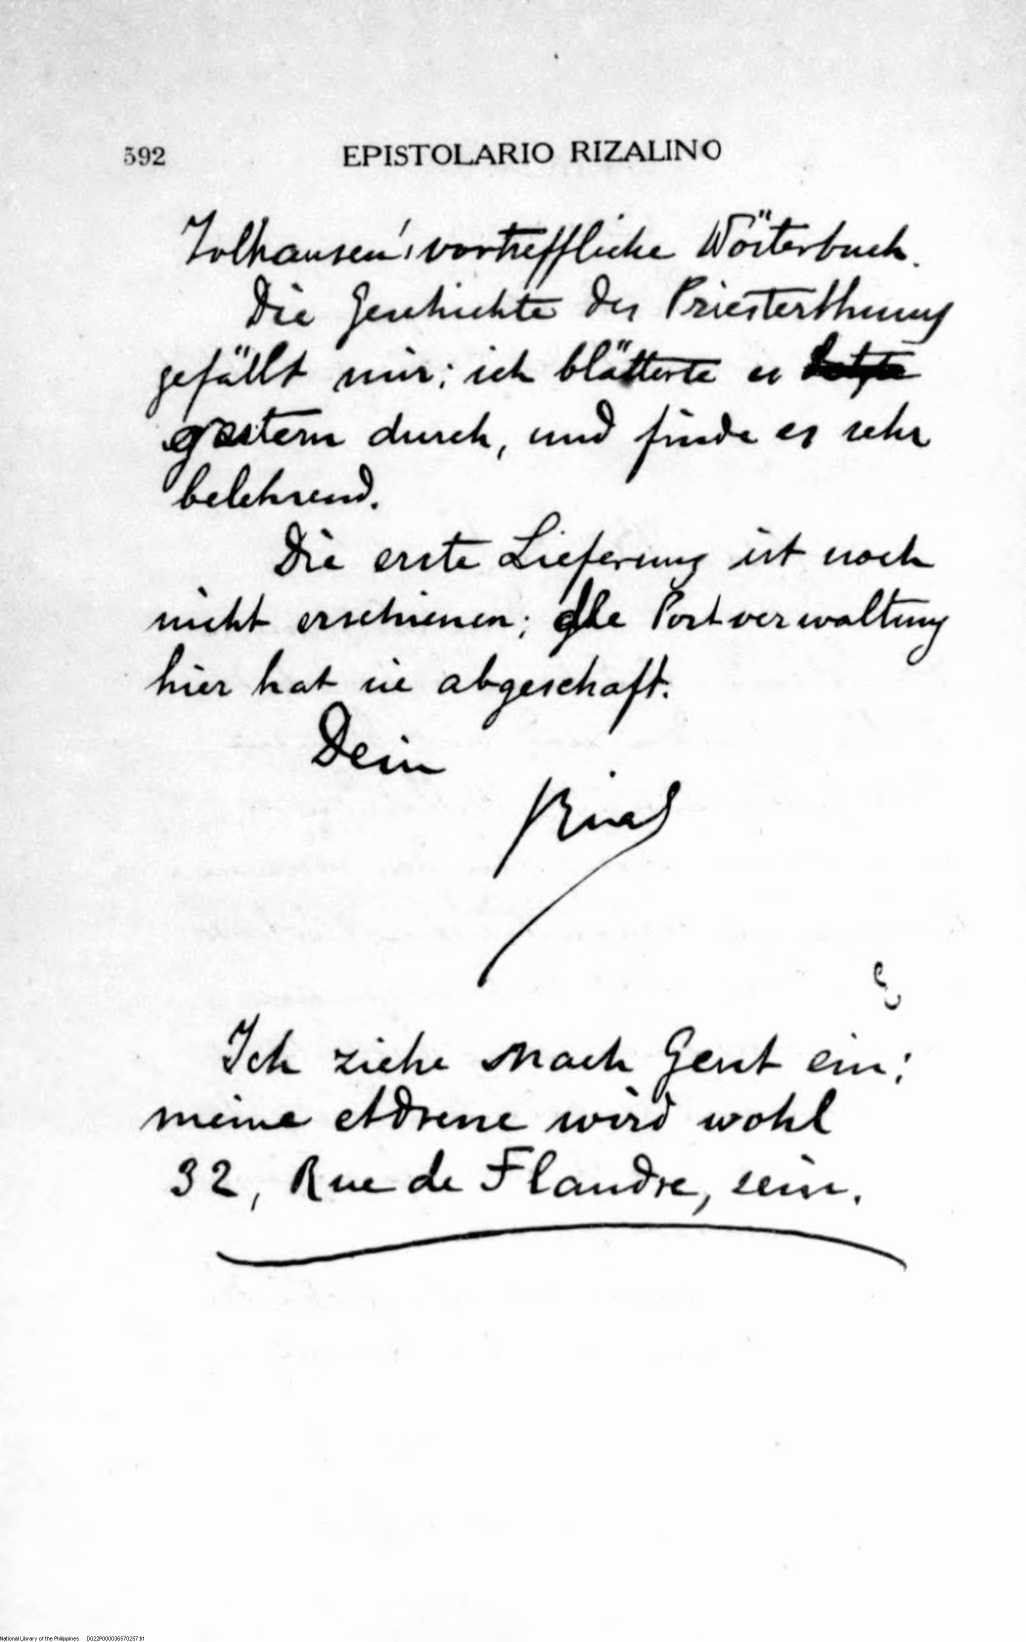 592 EPISTOLARIO RIZALINO
Tolhausen's vortreffliche Wörterbuch.
Die Geschichte des Priesterthums
gefällt mir; ich blätterte es
gestern durch, und finde es sehr
belehrend.
Die erste Lieferung ist noch
nicht erschienen; die Postverwaltung
hier hat sie abgeschaft.
Dein
Rizal
Ich ziehe nach Gent ein;
meine Adresse wird wohl
32, Rue de Flandre, sein.
National Library of the Philippines